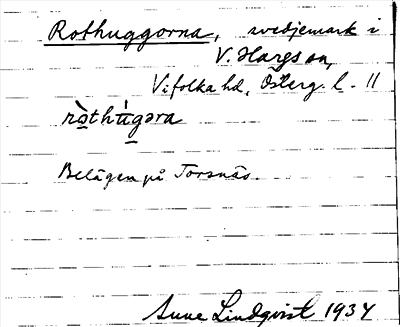 Rothuggorna, svedjemark i
V. Hargs sn,
Vifolka hd, Österg. l. 11
ròthúgəra
Belägen på Torsnäs.
Anne Lindqvist 1934